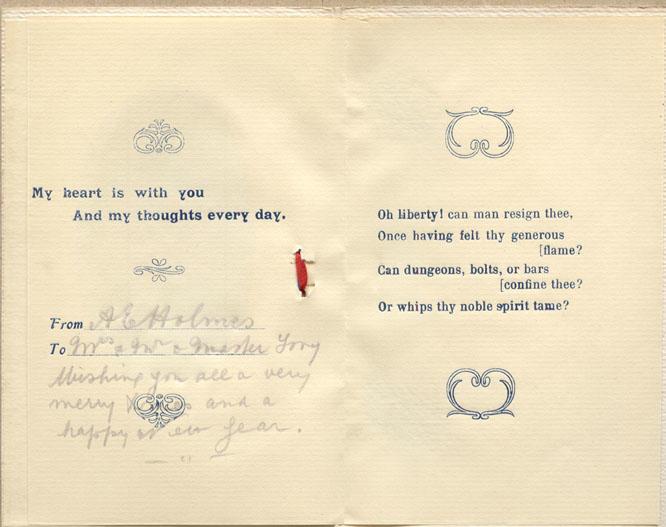 My heart is with you
And my thoughts every day.
From A E Holmes
To Mrs & Mr & Master Tory
Wishing you all a very
merry Xmas and a
happy New Year.
Oh liberty! can man resign thee,
Once having felt thy generous
[flame?
Can dungeons, bolts, or bars
[confine thee?
Or whips thy noble spirit tame?